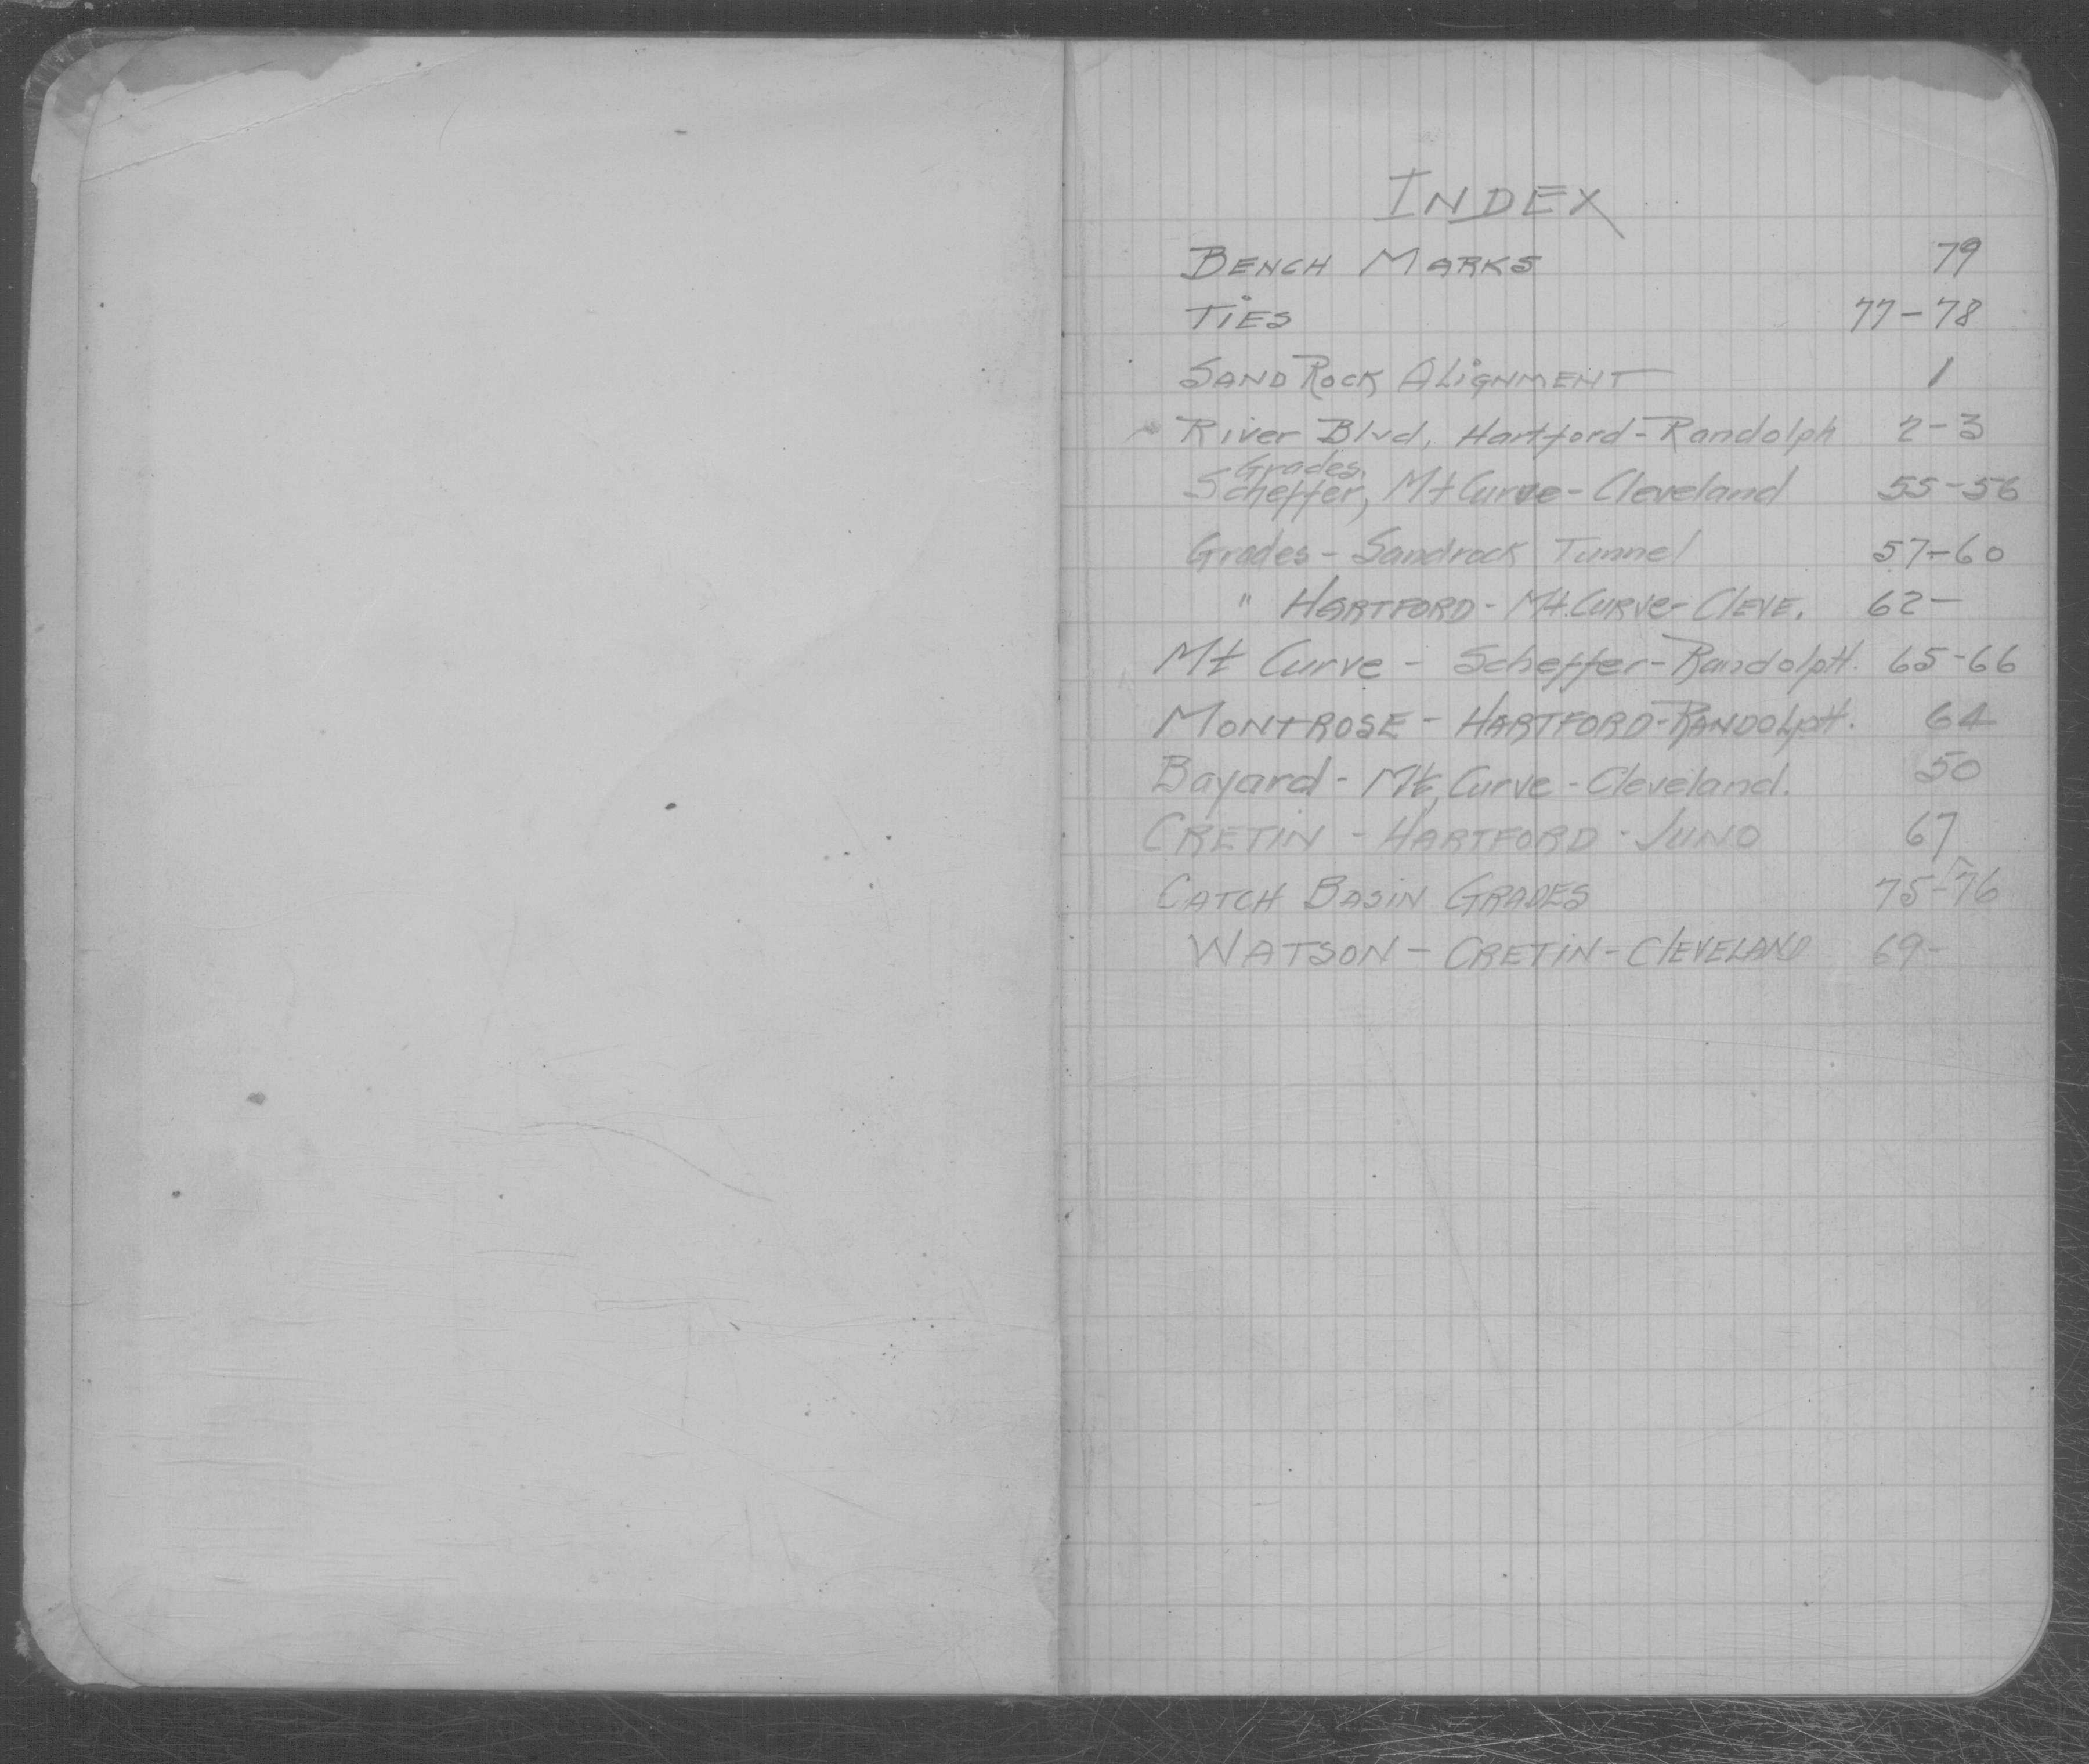 INDEX
BENCH MARKS 79
TiES 77-78
SAND ROCK ALiGNMENT 1
River Blvd, Hartford-Randolph 2-3
Grades
Scheffer, Mt Curve-Cleveland 55-56
Grades - Sandrock Tunnel 57-60
" HARTFORD - Mt. CURVe-CLEVE. 62-
Mt Curve - Scheffer-RandolpH. 65-66
MONTROSE - HARTFORD-RANDOLpH. 64
Bayard - Mt, Curve-Cleveland. 50
CRETIN - HARTFORD - JUNO 67
CATCH BASiN GRADES 75-76
WATSON - CRETiN-ClEVELAND 69-